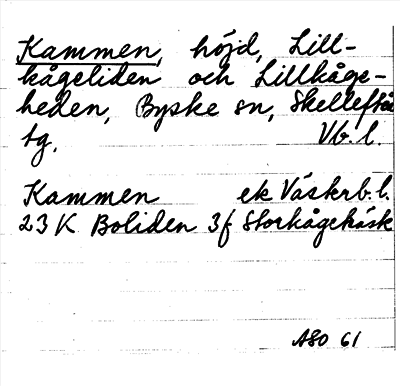 Kammen, höjd, Lill-
kågeliden och Lillkåge-
heden, Byske sn, Skellefteå
tg. Vb. l.
Kammen ek Västerb. l.
23 K Boliden 3f Storkågeträsk
ASO 61